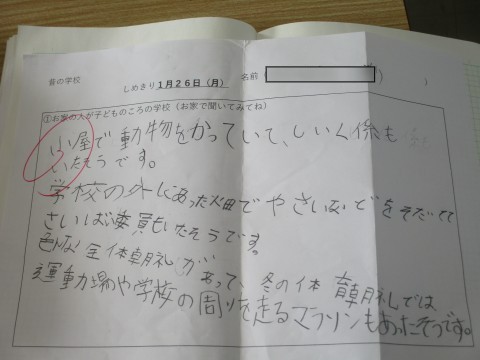 昔の学校
しめきり1月26日(月) 名前( )
①お家の人が子どものころの学校(お家で聞いてみてね)
小屋で動物をかっていて、しいく係も
いたそうです。
学校の外にあった畑でやさいなどをそだてて
さいばい委員もいたそうです。
色んな全体朝礼が
あって、冬の体育朝礼では
運動場や学校の周りを走るマラソンもあったそうです。